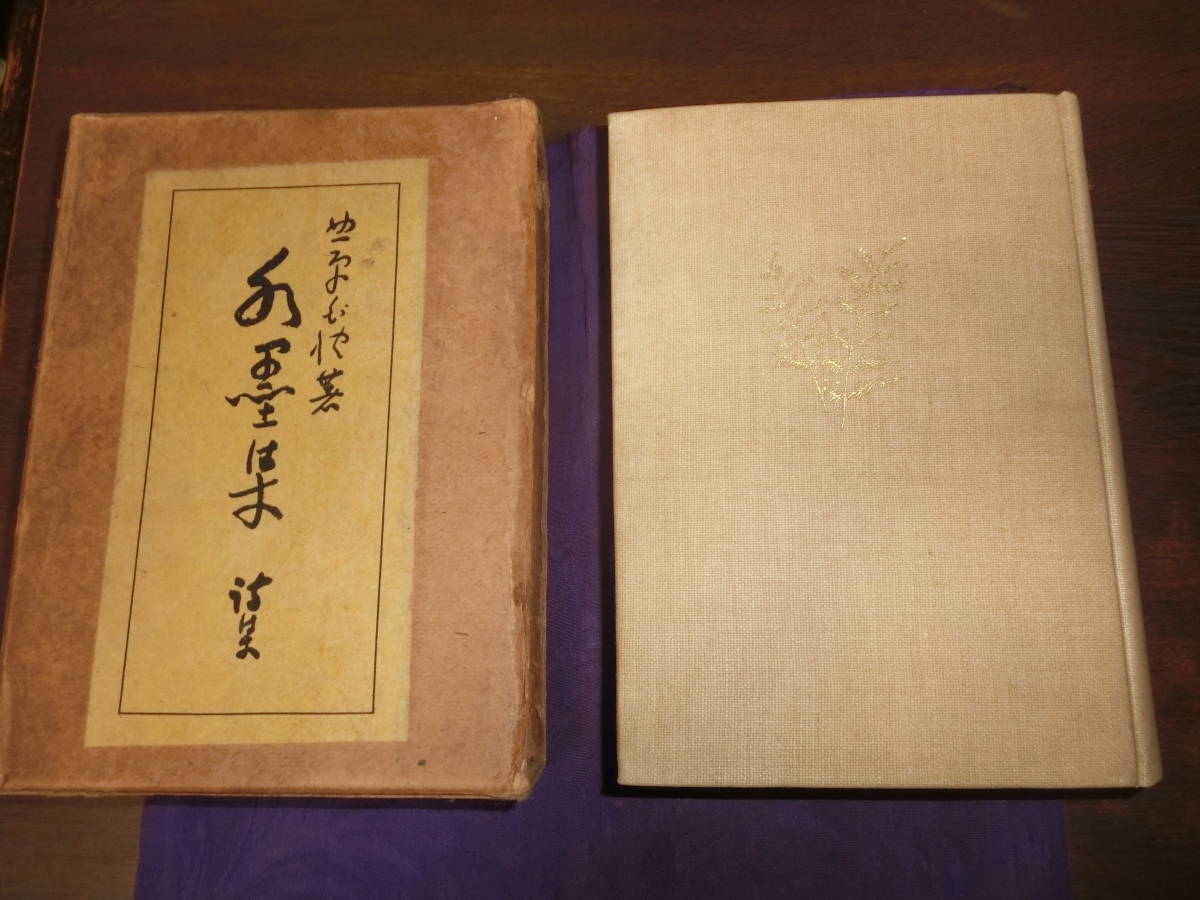 北原白秋著
水墨集 詩集